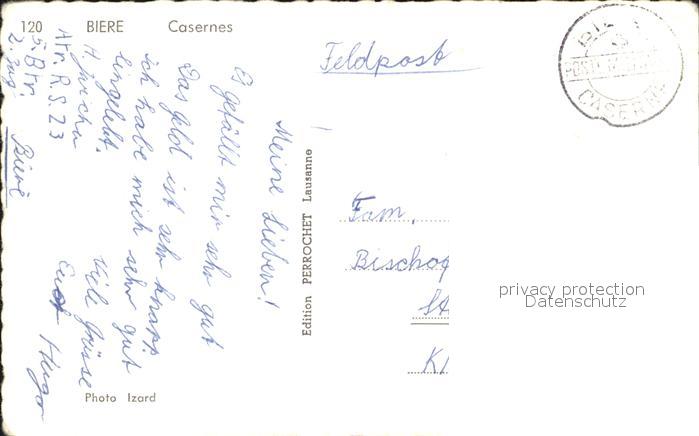 120 BIERE Casernes
Meine Lieben!
Es gefällt mir sehr gut
Das Geld ist sehr knapp.
ich habe mich sehr gut
eingelebt.
Viele Grüsse
Euer Hugo
Atr. R.S. 23
5. Btr.
2. Zug
Bière
Photo Izard
Edition PERROCHET Lausanne
Feldpost
CASERNE
Fam.
Bischof
St
Kl
privacy protection
Datenschutz